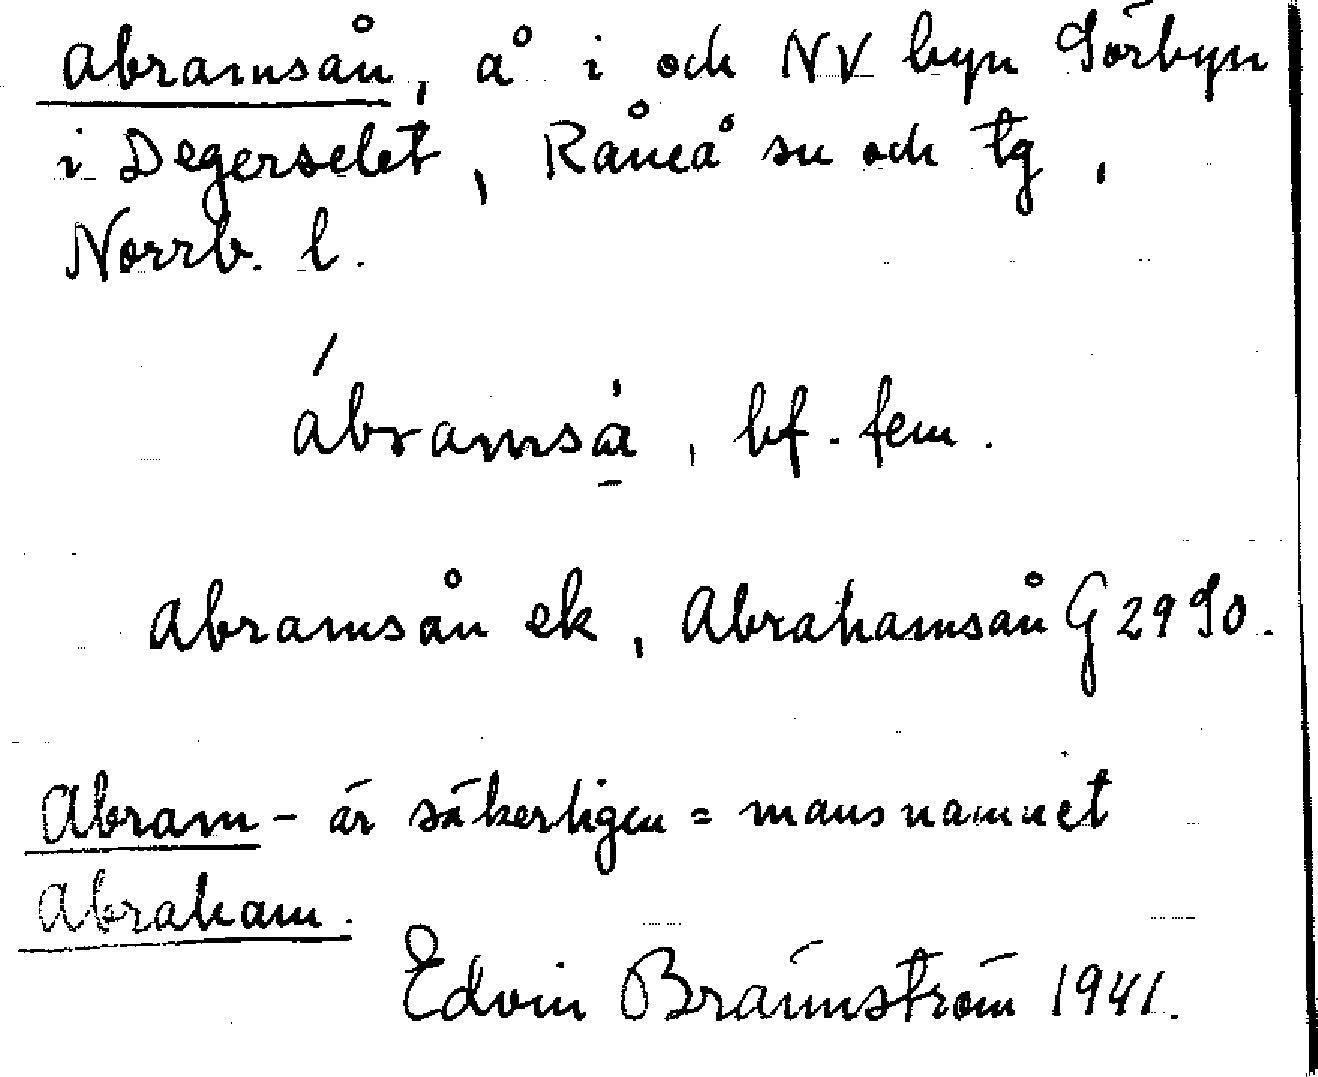 Abramsån, å i och NV byn Sörbyn
i Degerselet, Råneå sn och tg,
Norrb. l.
ábramså̱, bf. fem.
Abramsån ek, Abrahamsån G 29 So.
Abram- är säkerligen = mansnamnet
Abraham.
Edvin Brännström 1941.